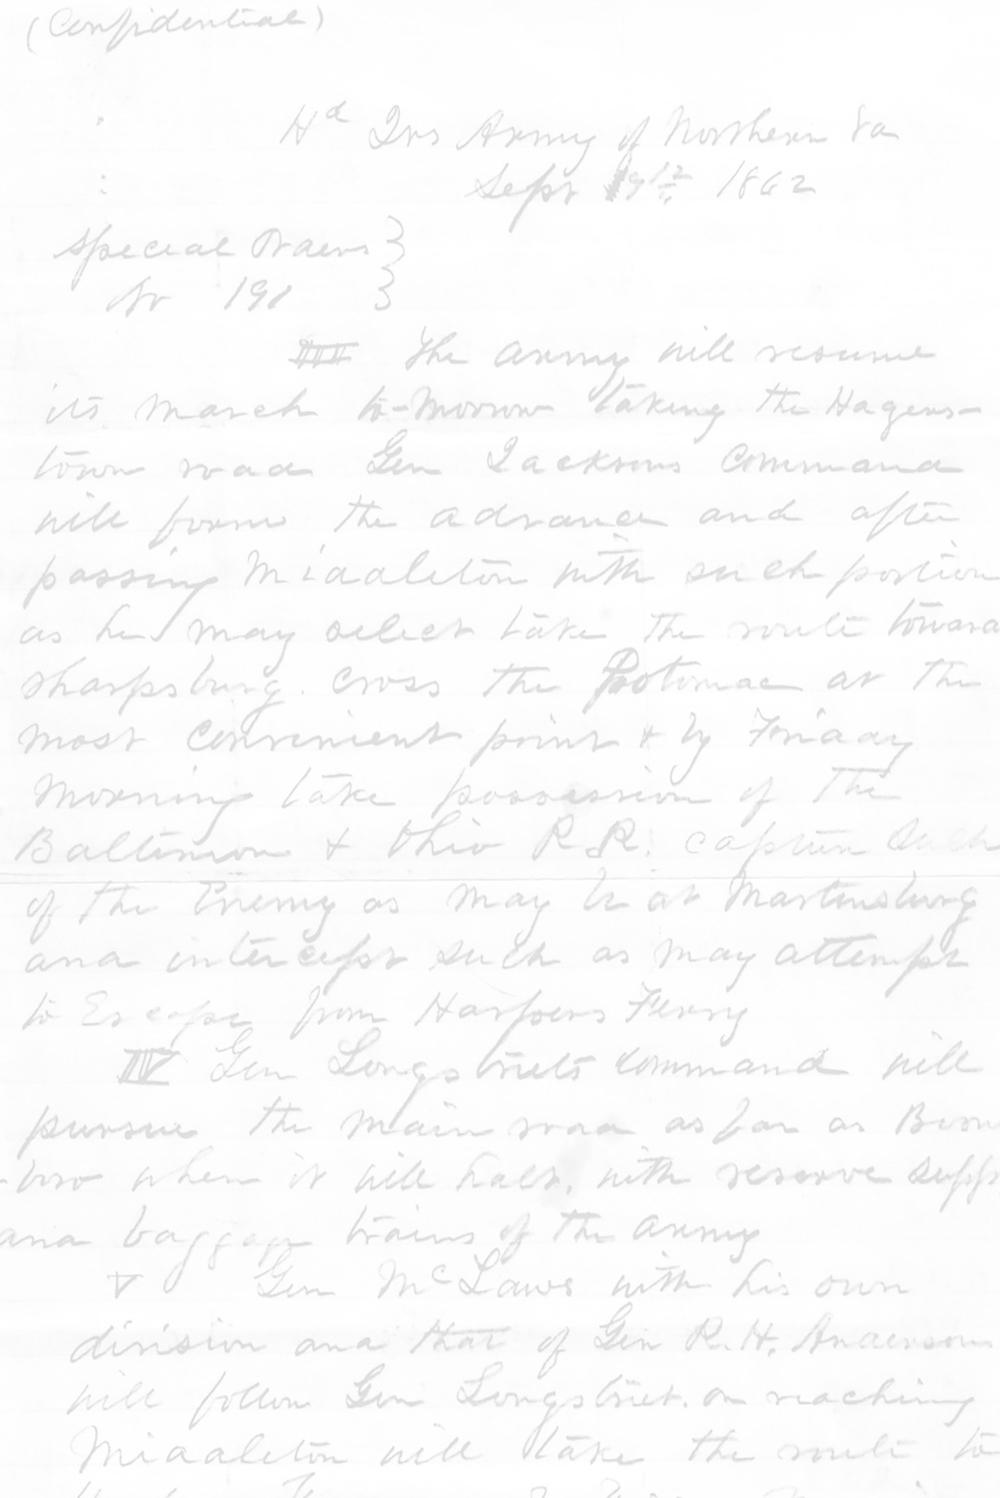 (Confidential)
Hd Qrs Army of Northern Va
Sept 9th 1862
Special Orders }
No 191 }
III The Army will resume
its march to-morrow taking the Hagers-
town road. Gen Jacksons Command
will form the advance and after
passing Middleton with such portion
as he may select take the route toward
Sharpsburg. cross the Potomac at the
most convenient point & by Friday
Morning take possession of the
Baltimore & Ohio R.R. capture such
of the Enemy as may be at Martinsburg
and intercept such as may attempt
to Escape from Harpers Ferry
IV Gen Longstreets command will
pursue the main road as far as Boons
-boro where it will halt. with reserve supply
and baggage trains of the army
V Gen McLaws with his own
division and that of Gen R.H. Andersons
will follow Gen Longstreet. on reaching
Middleton will take the route to